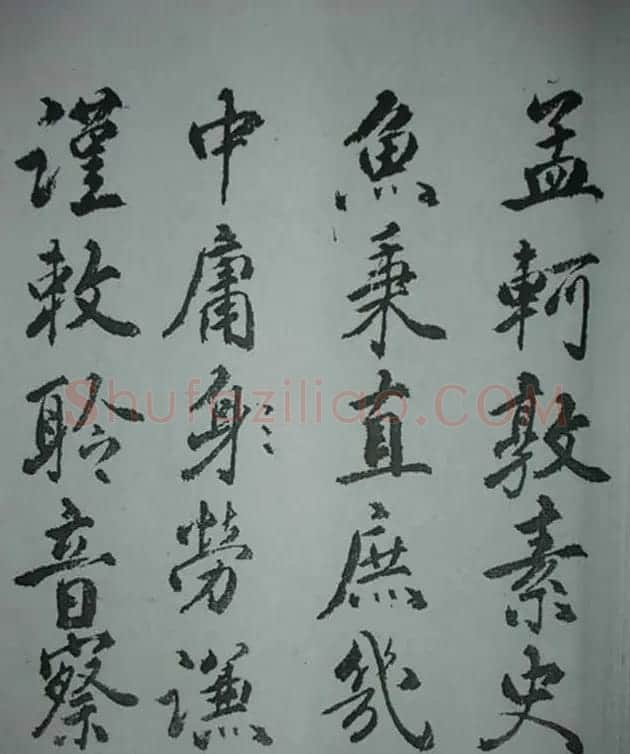 孟軻敦素史
魚秉直庶幾
中庸勞謙
謹敕聆音察
Shufaziliao.COM